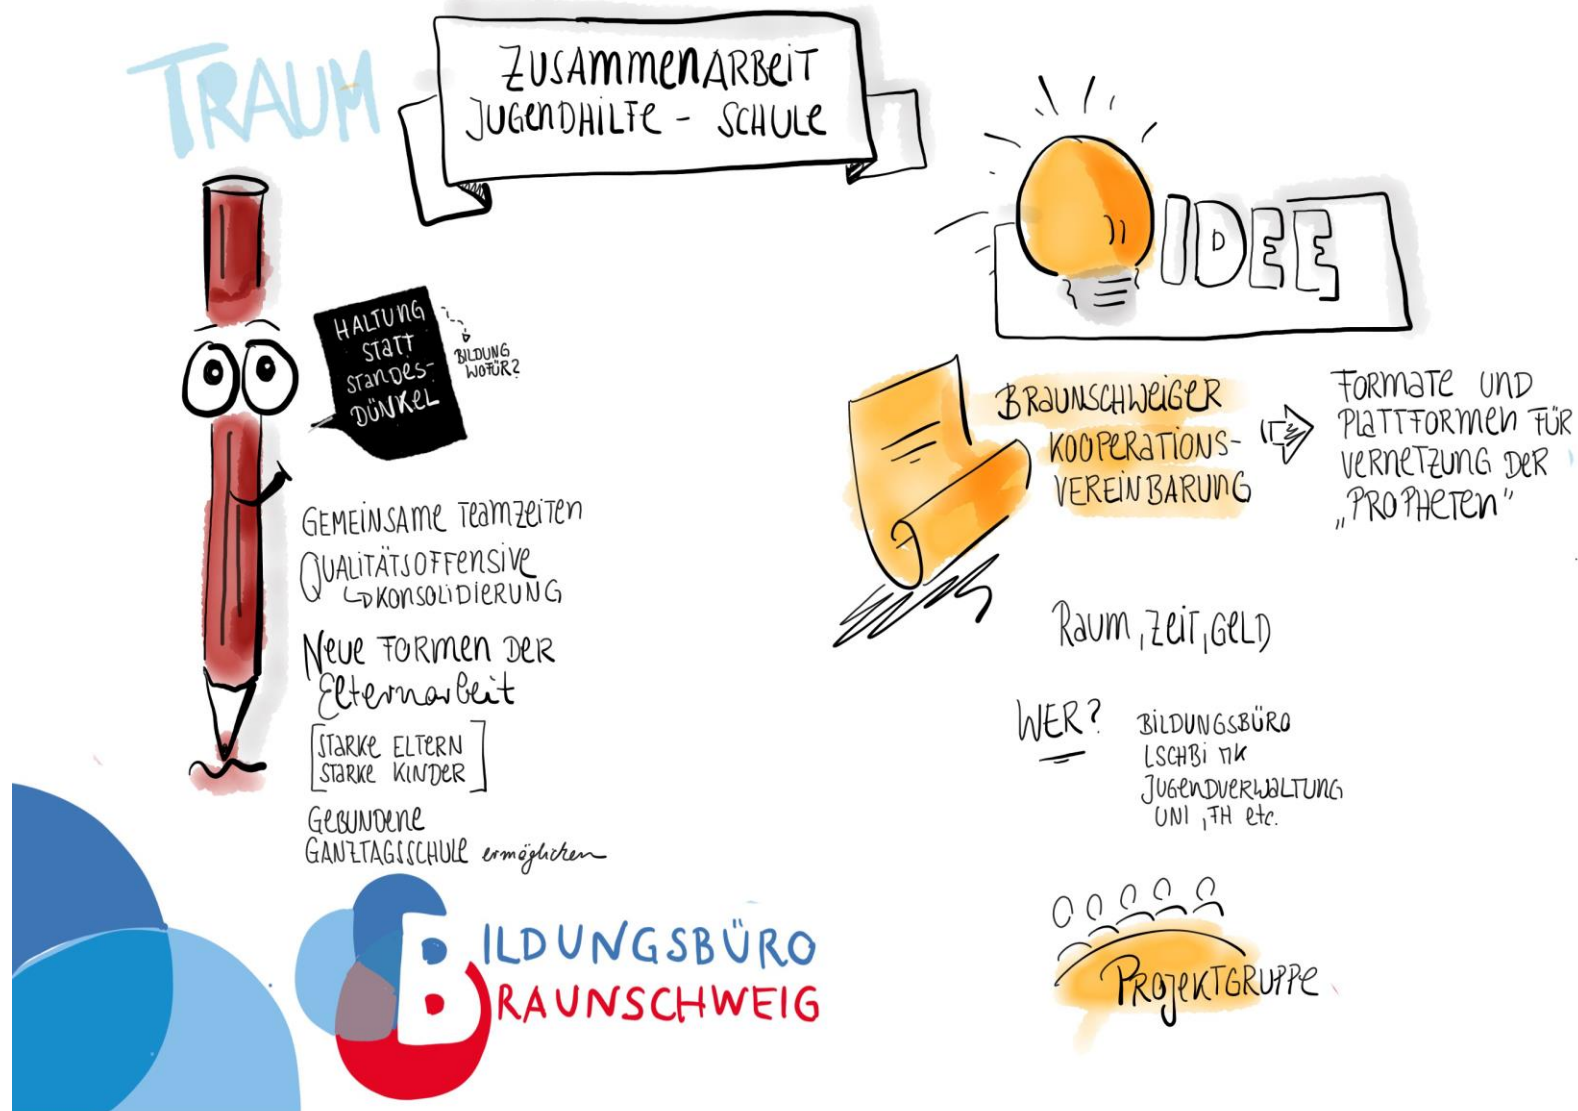 TRAUM
ZUSAMMENARBEIT
JUGENDHILFE - SCHULE
HALTUNG
STATT
STANDES-
DÜNKEL
BILDUNG
WOFÜR?
GEMEINSAME TEAMZEITEN
QUALITÄTSOFFENSIVE
KONSOLIDIERUNG
NEUE FORMEN DER
Elternarbeit
[STARKE ELTERN
STARKE KINDER]
GEBUNDENE
GANZTAGSSCHULE ermöglichen
IDEE
BRAUNSCHWEIGER
KOOPERATIONS-
VEREINBARUNG
FORMATE UND
PLATTFORMEN FÜR
VERNETZUNG DER
„PROPHETEN“
RAUM, ZEIT, GELD
WER?
BILDUNGSBÜRO
LSCHB; MK
JUGENDVERWALTUNG
UNI, FH etc.
PROJEKTGRUPPE
BILDUNGSBÜRO
BRAUNSCHWEIG